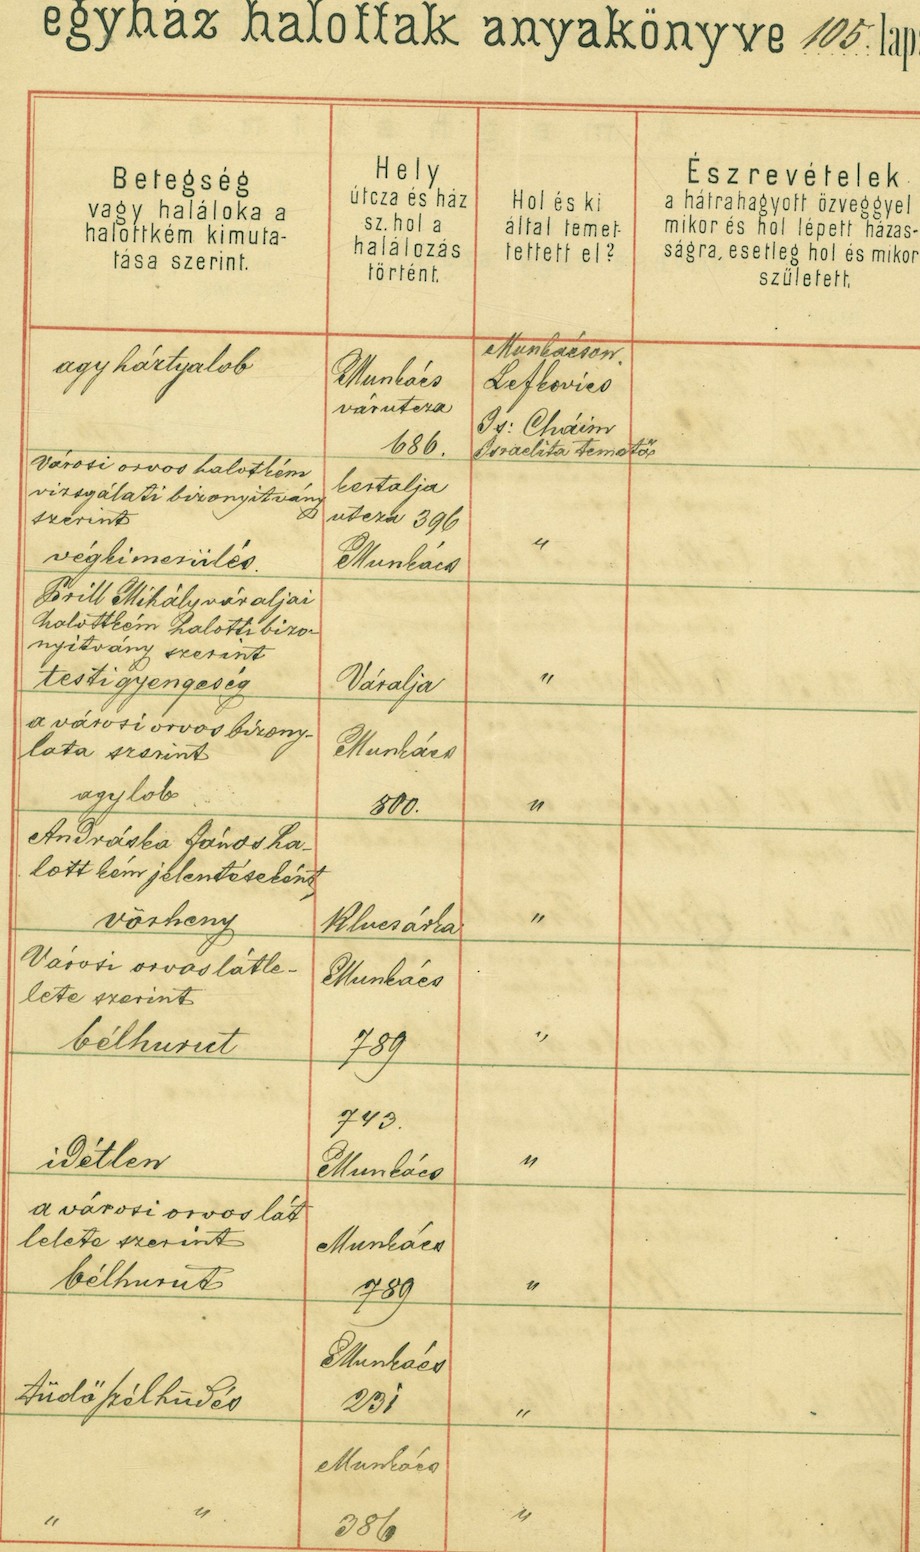 egyház halottak anyakönyve 105. lap
Betegség
vagy haláloka a
halottkém kimuta-
tása szerint.
Hely
útcza és ház
sz. hol a
halálozás
történt.
Hol és ki
által temet-
tettett el?
Észrevételek
a hátrahagyott özveggyel
mikor és hol lépett házas-
ságra, esetleg hol és mikor
született.
agyhártyalob
Munkács
várutcza
686.
Munkácson
Lefkovics
Is: Cháim
Israelita temető
Városi orvos halotkém
vizsgálati bizonyitvány
szerint
végkimerülés.
kertalja
utcza 396
Munkács
"
Brill Mihály váraljai
halottkém halotti bizo-
nyitvány szerint
testi gyengeség
Váralja
"
a városi orvos bizony-
lata szerint
agylob
Munkács
800.
"
Andráska János ha-
lottkém jelentéseként
vörheny
Klucsárka
"
Városi orvos látle-
lete szerint
bélhurut
Munkács
789
"
idétlen
743.
Munkács
"
a városi orvos lát
lelete szerint
bélhurut
Munkács
789
"
tüdőszélhüdés
Munkács
231
"
" "
Munkács
386
"